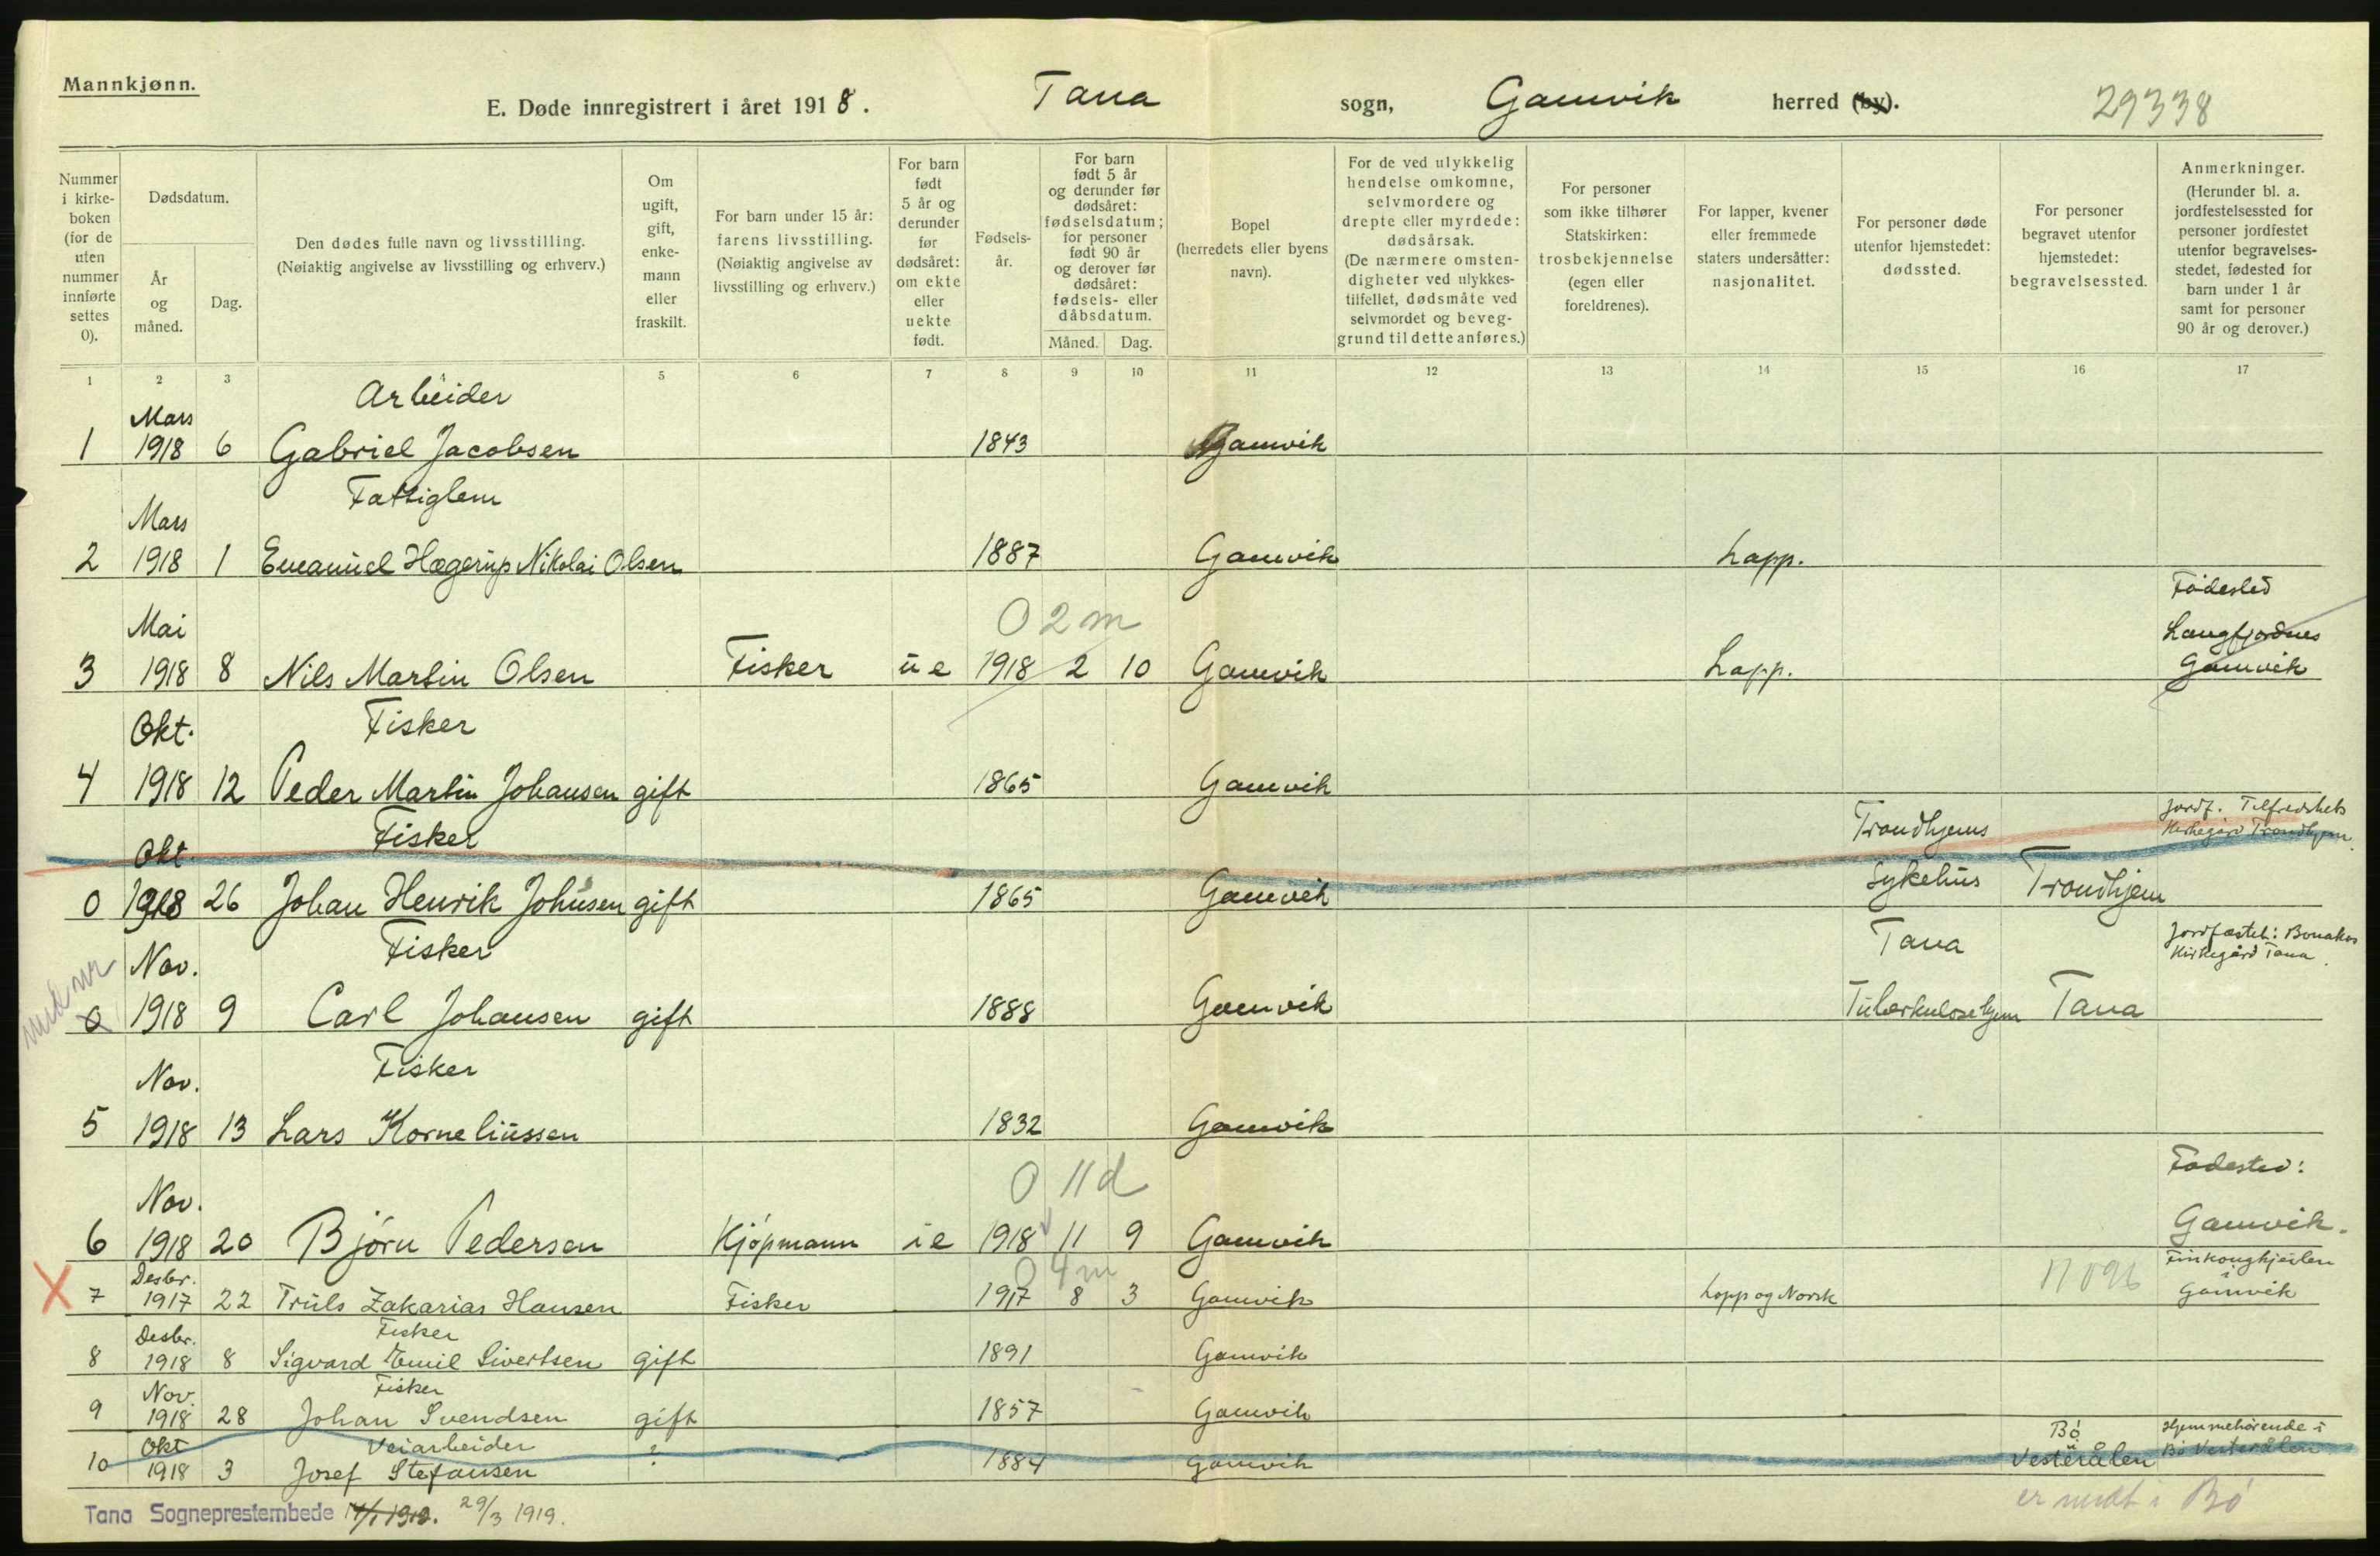 Mannkjønn.
E. Døde innregistrert i året 1918. Tana sogn, Gamvik herred (by). 29338
Nummer i kirkeboken (for de uten nummer innførte settes 0).
Dødsdatum.
År og måned.
Dag.
Den dødes fulle navn og livsstilling.
(Nøiaktig angivelse av livsstilling og erhverv.)
Om ugift, gift, enkemann eller fraskilt.
For barn under 15 år: farens livsstilling. (Nøiaktig angivelse av livsstilling og erhverv.)
For barn født 5 år og derunder før dødsåret: om ekte eller uekte født.
Fødselsår.
For barn født 5 år og derunder før dødsåret: fødselsdatum; for personer født 90 år og derover før dødsåret: fødsels- eller dåbsdatum.
Måned. Dag.
Bopel (herredets eller byens navn).
For de ved ulykkelig hendelse omkomne, selvmordere og drepte eller myrdede: dødsårsak. (De nærmere omstendigheter ved ulykkestilfellet, dødsmåte ved selvmordet og beveggrund til dette anføres.)
For personer som ikke tilhører Statskirken: trosbekjennelse (egen eller foreldrenes).
For lapper, kvener eller fremmede staters undersåtter: nasjonalitet.
For personer døde utenfor hjemstedet: dødssted.
For personer begravet utenfor hjemstedet: begravelsessted.
Anmerkninger. (Herunder bl. a. jordfestelsessted for personer jordfestet utenfor begravelsesstedet, fødested for barn under 1 år samt for personer 90 år og derover.)
1 2 3 4 5 6 7 8 9 10 11 12 13 14 15 16 17
Mars Arbeider
1 1918 6 Gabriel Jacobsen 1843 Gamvik
Mars Fattiglem
2 1918 1 Emanuel Hagerup Nikolai Olsen 1887 Gamvik Lapp.
Mai 0 2 m Fødested Langfjordnes
3 1918 8 Nils Martin Olsen Fisker u e 1918 2 10 Gamvik Lapp. Gamvik
Okt. Fisker
4 1918 12 Peder Martin Johansen gift 1865 Gamvik
Okt. Fisker Trondhjems Jordf. Tilfredshets Kirkegård Trondhjem.
0 1918 26 Johan Henrik Johnsen gift 1865 Gamvik Sykehus Trondhjem
Nov. Fisker Tana Jordfæstet: Bonakas Kirkegård Tana.
0 1918 9 Carl Johansen gift 1888 Gamvik Tuberkulosehjem Tana
Nov. Fisker
5 1918 13 Lars Korneliussen 1832 Gamvik
Nov. 0 11 d Fødested:
6 1918 20 Bjørn Pedersen Kjøpmann i e 1918 11 9 Gamvik Gamvik.
Desbr. 0 4 m
X 7 1917 22 Truls Zakarias Hansen Fisker 1917 8 3 Gamvik Lapp og Norsk i Gamvik
Desbr. Fisker
8 1918 8 Sigvard Emil Sivertsen gift 1891 Gamvik
Nov. Fisker
9 1918 28 Johan Svendsen gift 1857 Gamvik
Okt Veiarbeider ? Bø Hjemmehørende i
10 1918 3 Josef Stefansen 1884 Gamvik Vesterålen Bø Vesterålen
Tana Sogneprestembede 29/3 1919. er medt i Bø